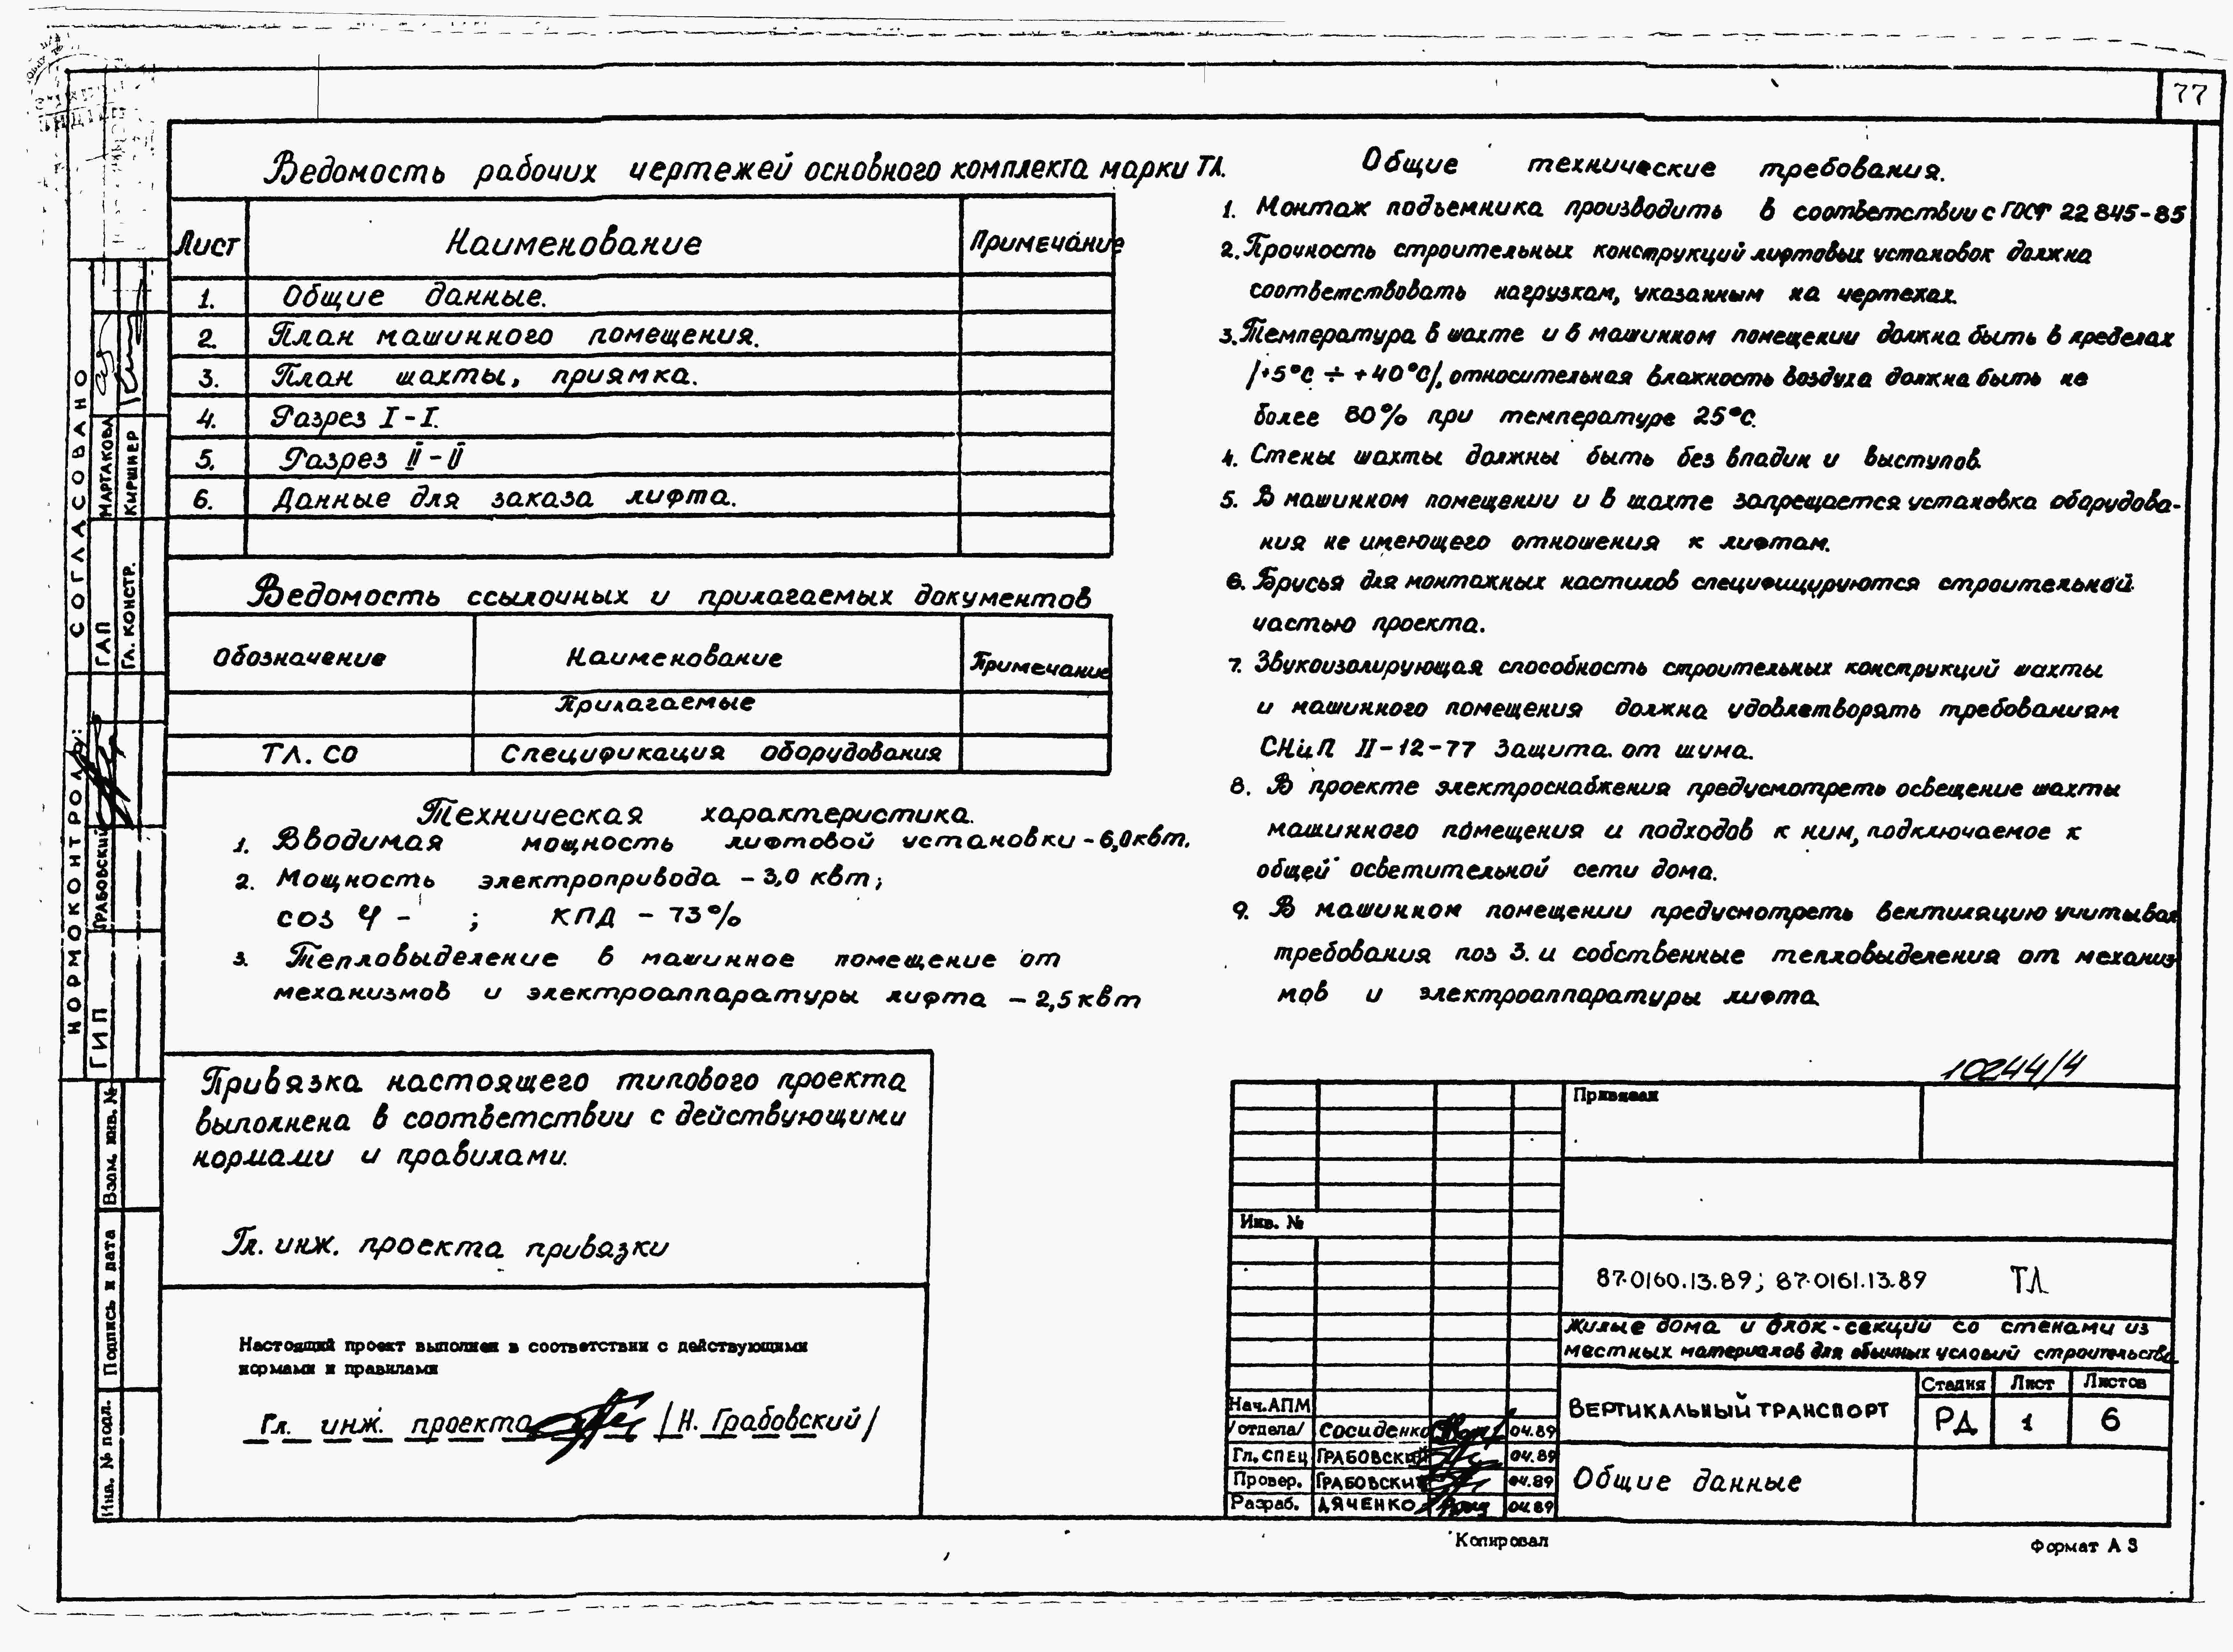 77
Ведомость рабочих чертежей основного комплекта марки ТЛ.
Лист Наименование Примечание
1. Общие данные.
2. План машинного помещения.
3. План шахты, приямка.
4. Разрез I-I.
5. Разрез II-II
6. Данные для заказа лифта.
Ведомость ссылочных и прилагаемых документов
Обозначение Наименование Примечание
Прилагаемые
ТЛ. СО Спецификация оборудования
Техническая характеристика.
1. Вводимая мощность лифтовой установки - 6,0 квт.
2. Мощность электропривода - 3,0 квт;
cos φ - ; КПД - 73%
3. Тепловыделение в машинное помещение от
механизмов и электроаппаратуры лифта - 2,5 квт
Общие технические требования.
1. Монтаж подъемника производить в соответствии с ГОСТ 22845-85
2. Прочность строительных конструкций лифтовых установок должна
соответствовать нагрузкам, указанным на чертежах.
3. Температура в шахте и в машинном помещении должна быть в пределах
/+5°С ÷ +40°С/, относительная влажность воздуха должна быть не
более 80% при температуре 25°С.
4. Стены шахты должны быть без впадин и выступов.
5. В машинном помещении и в шахте запрещается установка оборудова-
ния не имеющего отношения к лифтам.
6. Брусья для монтажных настилов специфицируются строительной
частью проекта.
7. Звукоизолирующая способность строительных конструкций шахты
и машинного помещения должна удовлетворять требованиям
СНиП II-12-77 Защита от шума.
8. В проекте электроснабжения предусмотреть освещение шахты
машинного помещения и подходов к ним, подключаемое к
общей осветительной сети дома.
9. В машинном помещении предусмотреть вентиляцию учитывая
требования поз 3. и собственные тепловыделения от механиз
мов и электроаппаратуры лифта.
Привязка настоящего типового проекта
выполнена в соответствии с действующими
нормами и правилами.
Гл. инж. проекта привязки
Настоящий проект выполнен в соответствии с действующими
нормами и правилами
Гл. инж. проекта /Н. Грабовский/
СОГЛАСОВАНО
ГАП МАРТАКОВА
ГЛ. КОНСТР. КИРШНЕР
НОРМОКОНТРОЛЬ:
ГИП ГРАБОВСКИЙ
Взам. инв. №
Подпись и дата
Инв. № подл.
10244/4
Привязан
Инв. №
87-0160.13.89; 87-0161.13.89 ТЛ
Жилые дома и блок-секции со стенами из
местных материалов для обычных условий строительства
ВЕРТИКАЛЬНЫЙ ТРАНСПОРТ
Стадия Лист Листов
РД 1 6
Общие данные
Нач. АПМ
/отдела/ Сосиденко 04.89
Гл. СПЕЦ ГРАБОВСКИЙ 04.89
Провер. ГРАБОВСКИЙ 04.89
Разраб. ДЯЧЕНКО 04.89
Копировал
Формат А3